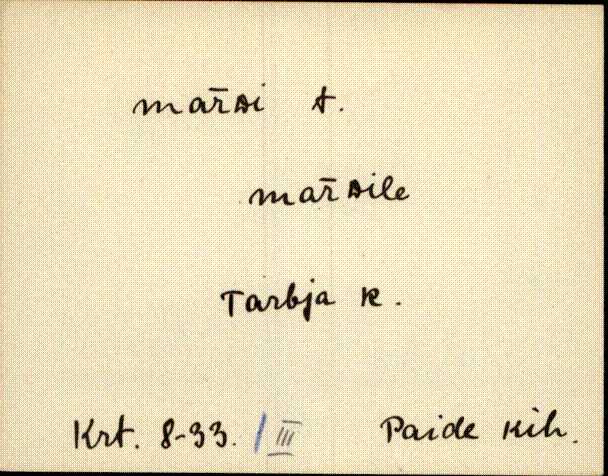 mar̄ᴅi t.
mar̄ᴅile
Tarbja k.
Krt. 8-33. / III Paide kih.